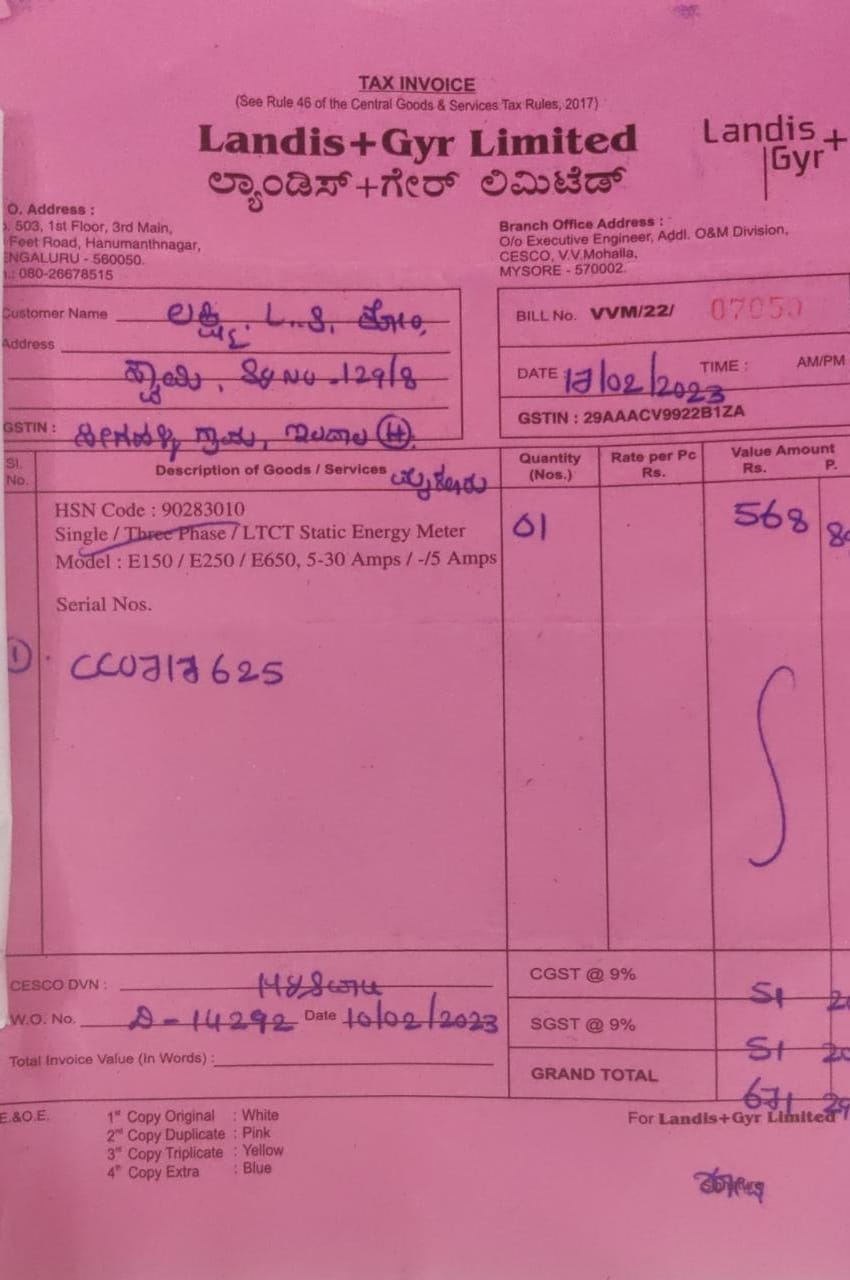 TAX INVOICE
(See Rule 46 of the Central Goods & Services Tax Rules, 2017)
Landis+Gyr Limited
Landis+
Gyr+
ಲ್ಯಾಂಡಿಸ್+ಗೇರ್ ಲಿಮಿಟೆಡ್
O. Address :
503, 1st Floor, 3rd Main,
Feet Road, Hanumanthnagar,
NGALURU - 560050.
: 080-26678515
Branch Office Address :
O/o Executive Engineer, Addl. O&M Division,
CESCO, V.V.Mohalla,
MYSORE - 570002.
Customer Name
Address
Sy NO - 129/8
GSTIN :
BILL No. VVM/22/ 07050
DATE 17/02/2023 TIME : AM/PM
GSTIN : 29AAACV9922B1ZA
Sl. No. Description of Goods / Services Quantity (Nos.) Rate per Pc Rs. Value Amount Rs. P.
HSN Code : 90283010
Single / Three Phase / LTCT Static Energy Meter 01 568
Model : E150 / E250 / E650, 5-30 Amps / -/5 Amps
Serial Nos.
1 CC0717625
CESCO DVN :
W.O. No. D-14292 Date 10/02/2023
Total Invoice Value (In Words) :
CGST @ 9% 51 20
SGST @ 9% 51 20
GRAND TOTAL 671 29
E.&O.E.
1st Copy Original : White
2nd Copy Duplicate : Pink
3rd Copy Triplicate : Yellow
4th Copy Extra : Blue
For Landis+Gyr Limited